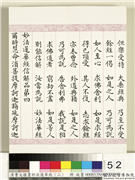 但樂受持 大乘經典 乃至不受
餘經一偈 如是之人 乃可為說
如人至心 求佛舍利 如是求經
得已頂受 其人不復 志求餘經
亦未曾念 外道典籍 如是之人
乃可為說 告舍利弗 我說是相
求佛道者 窮劫不盡 如是等人
則能信解 汝當為說 妙法華經
妙法蓮華經信解品第四
爾時慧命須菩提摩訶迦旃延摩訶迦
52